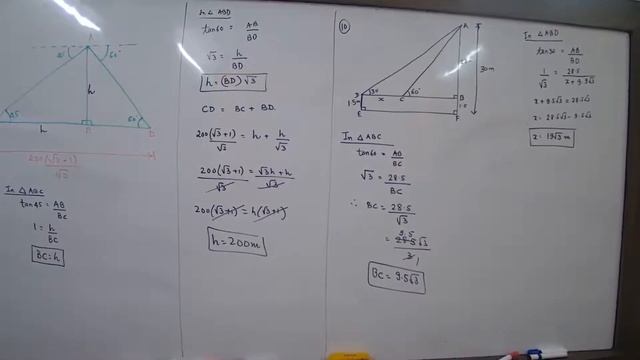 A
45°
60°
h
45
60
B
D
h
200(√3+1)
√3
In △ABC
tan45 = AB
BC
1 = h
BC
BC = h
In △ABD
tan60 = AB
BD
√3 = h
BD
h = (BD)√3
CD = BC + BD.
200(√3+1) = h + h
√3 √3
200(√3+1) = √3h + h
√3 √3
200(√3+1) = h(√3+1)
h = 200m
10
A
30m
D
30°
60°
x
C
B
1.5m
1.5
E
F
In △ABC
tan60 = AB
BC
√3 = 28.5
BC
∴ BC = 28.5
√3
9.5
= 28.5√3
3 1
BC = 9.5√3
In △ABD
tan30 = AB
BD
1 = 28.5
√3 x + 9.5√3
x + 9.5√3 = 28.5√3
x = 28.5√3 - 9.5√3
x = 19√3 m